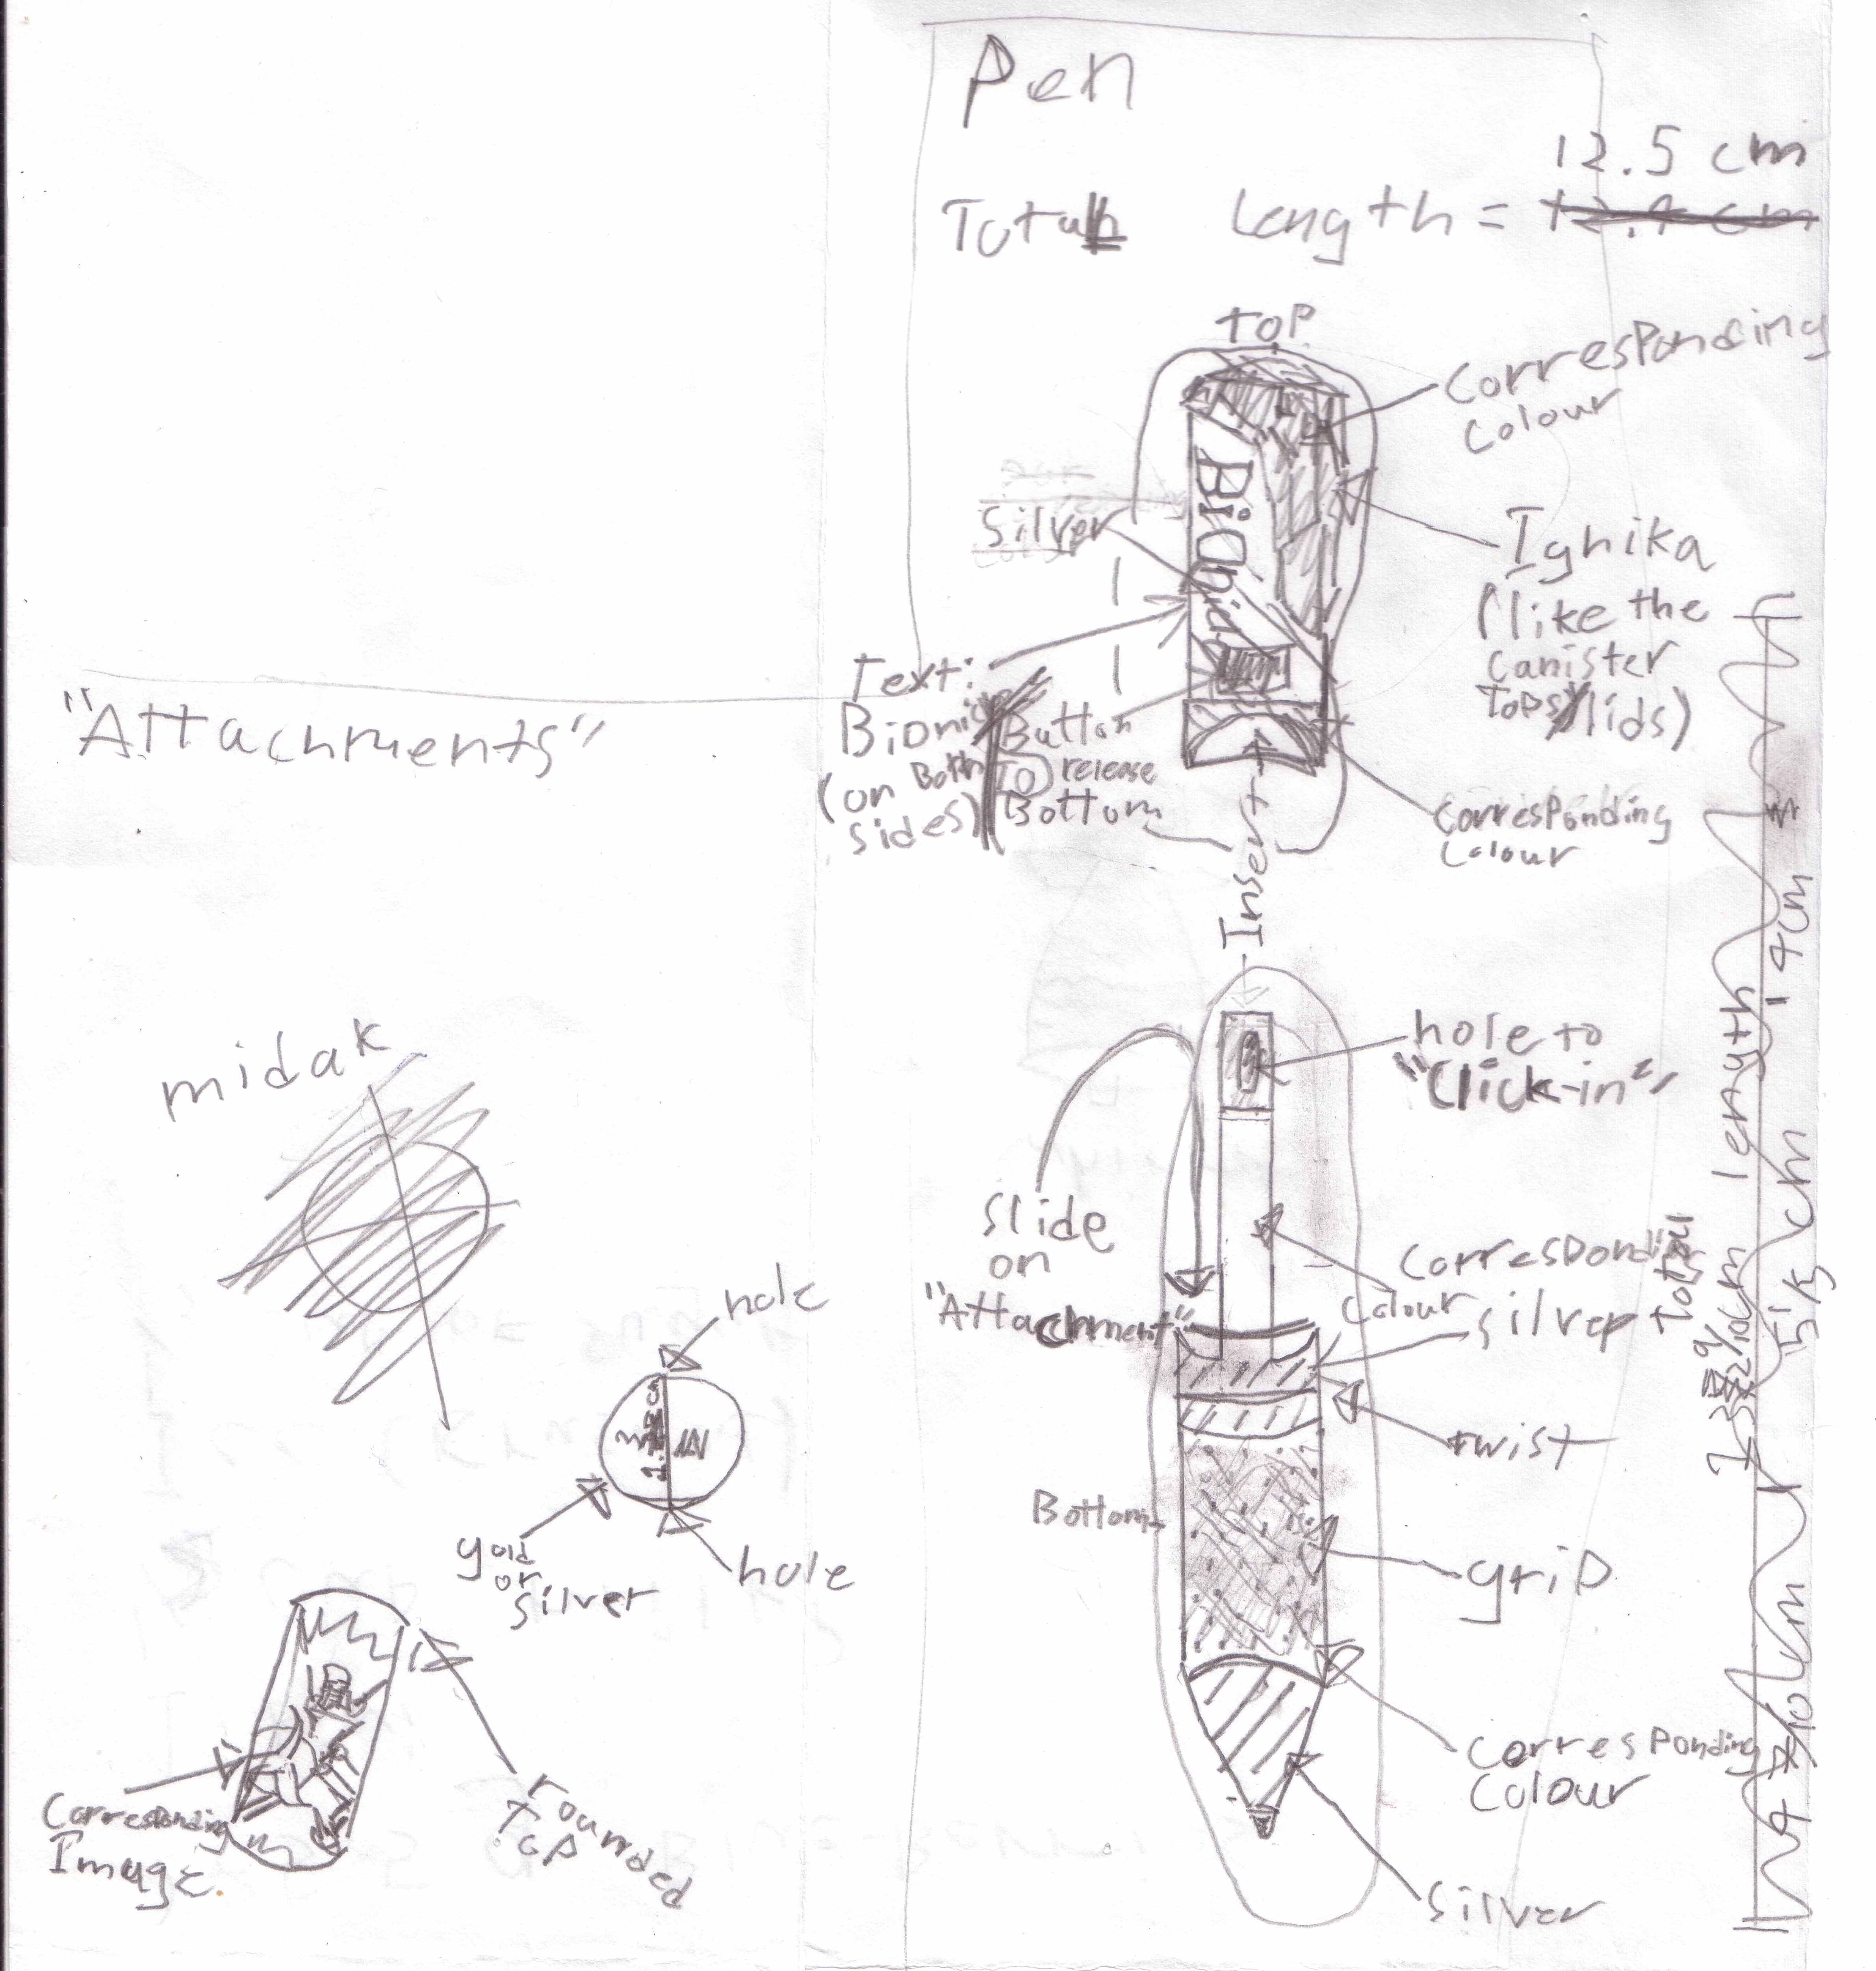 Pen
12.5 cm
Total Length = 12.4 cm
TOP
Corresponding
Colour
Silver
BiOnicle
Ignika
(like the
canister
Tops/lids)
Text:
Bionicle
(on Both
sides)
Button
To release
Bottom
Corresponding
Colour
Insert
"Attachments"
hole to
"Click-in"
midak
Slide
on
"Attachment"
Corresponding
Colour
silver
twist
hole
1.3
gold
or
silver
hole
Bottom
grip
Corresponding
Image
rounded
Top
Corresponding
Colour
Silver
4cm
length
total
cm